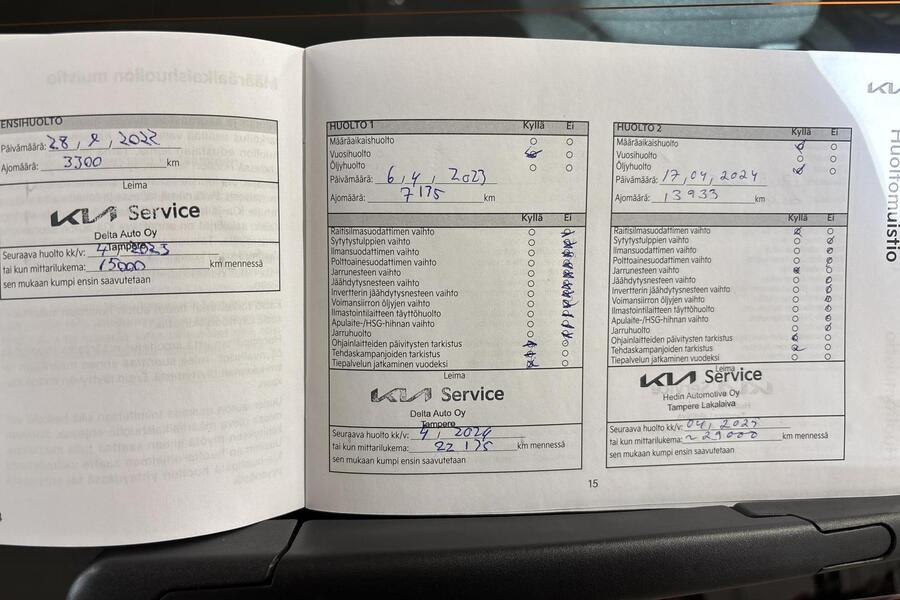 ENSIHUOLTO
Päivämäärä: 28, 2, 2022
Ajomäärä: 3300 km
Leima
KIA Service
Delta Auto Oy
Tampere
Seuraava huolto kk/v: 4, 2023
tai kun mittarilukema: 15000 km mennessä
sen mukaan kumpi ensin saavutetaan
HUOLTO 1 Kyllä Ei
Määräaikaishuolto
Vuosihuolto
Öljyhuolto
Päivämäärä: 6, 4, 2023
Ajomäärä: 7175 km
Kyllä Ei
Raitisilmasuodattimen vaihto
Sytytystulppien vaihto
Ilmansuodattimen vaihto
Polttoainesuodattimen vaihto
Jarrunesteen vaihto
Jäähdytysnesteen vaihto
Invertterin jäähdytysnesteen vaihto
Voimansiirron öljyjen vaihto
Ilmastointilaitteen täyttöhuolto
Apulaite-/HSG-hihnan vaihto
Jarruhuolto
Ohjainlaitteiden päivitysten tarkistus
Tehdaskampanjoiden tarkistus
Tiepalvelun jatkaminen vuodeksi
Leima
KIA Service
Delta Auto Oy
Tampere
Seuraava huolto kk/v: 4, 2024
tai kun mittarilukema: 22175 km mennessä
sen mukaan kumpi ensin saavutetaan
15
HUOLTO 2 Kyllä Ei
Määräaikaishuolto
Vuosihuolto
Öljyhuolto
Päivämäärä: 17, 04, 2024
Ajomäärä: 13933 km
Kyllä Ei
Raitisilmasuodattimen vaihto
Sytytystulppien vaihto
Ilmansuodattimen vaihto
Polttoainesuodattimen vaihto
Jarrunesteen vaihto
Jäähdytysnesteen vaihto
Invertterin jäähdytysnesteen vaihto
Voimansiirron öljyjen vaihto
Ilmastointilaitteen täyttöhuolto
Apulaite-/HSG-hihnan vaihto
Jarruhuolto
Ohjainlaitteiden päivitysten tarkistus
Tehdaskampanjoiden tarkistus
Tiepalvelun jatkaminen vuodeksi
Leima
KIA Service
Hedin Automotive Oy
Tampere Lakalaiva
Seuraava huolto kk/v: 04, 2025
tai kun mittarilukema: ~29000 km mennessä
sen mukaan kumpi ensin saavutetaan
Huoltomuistio